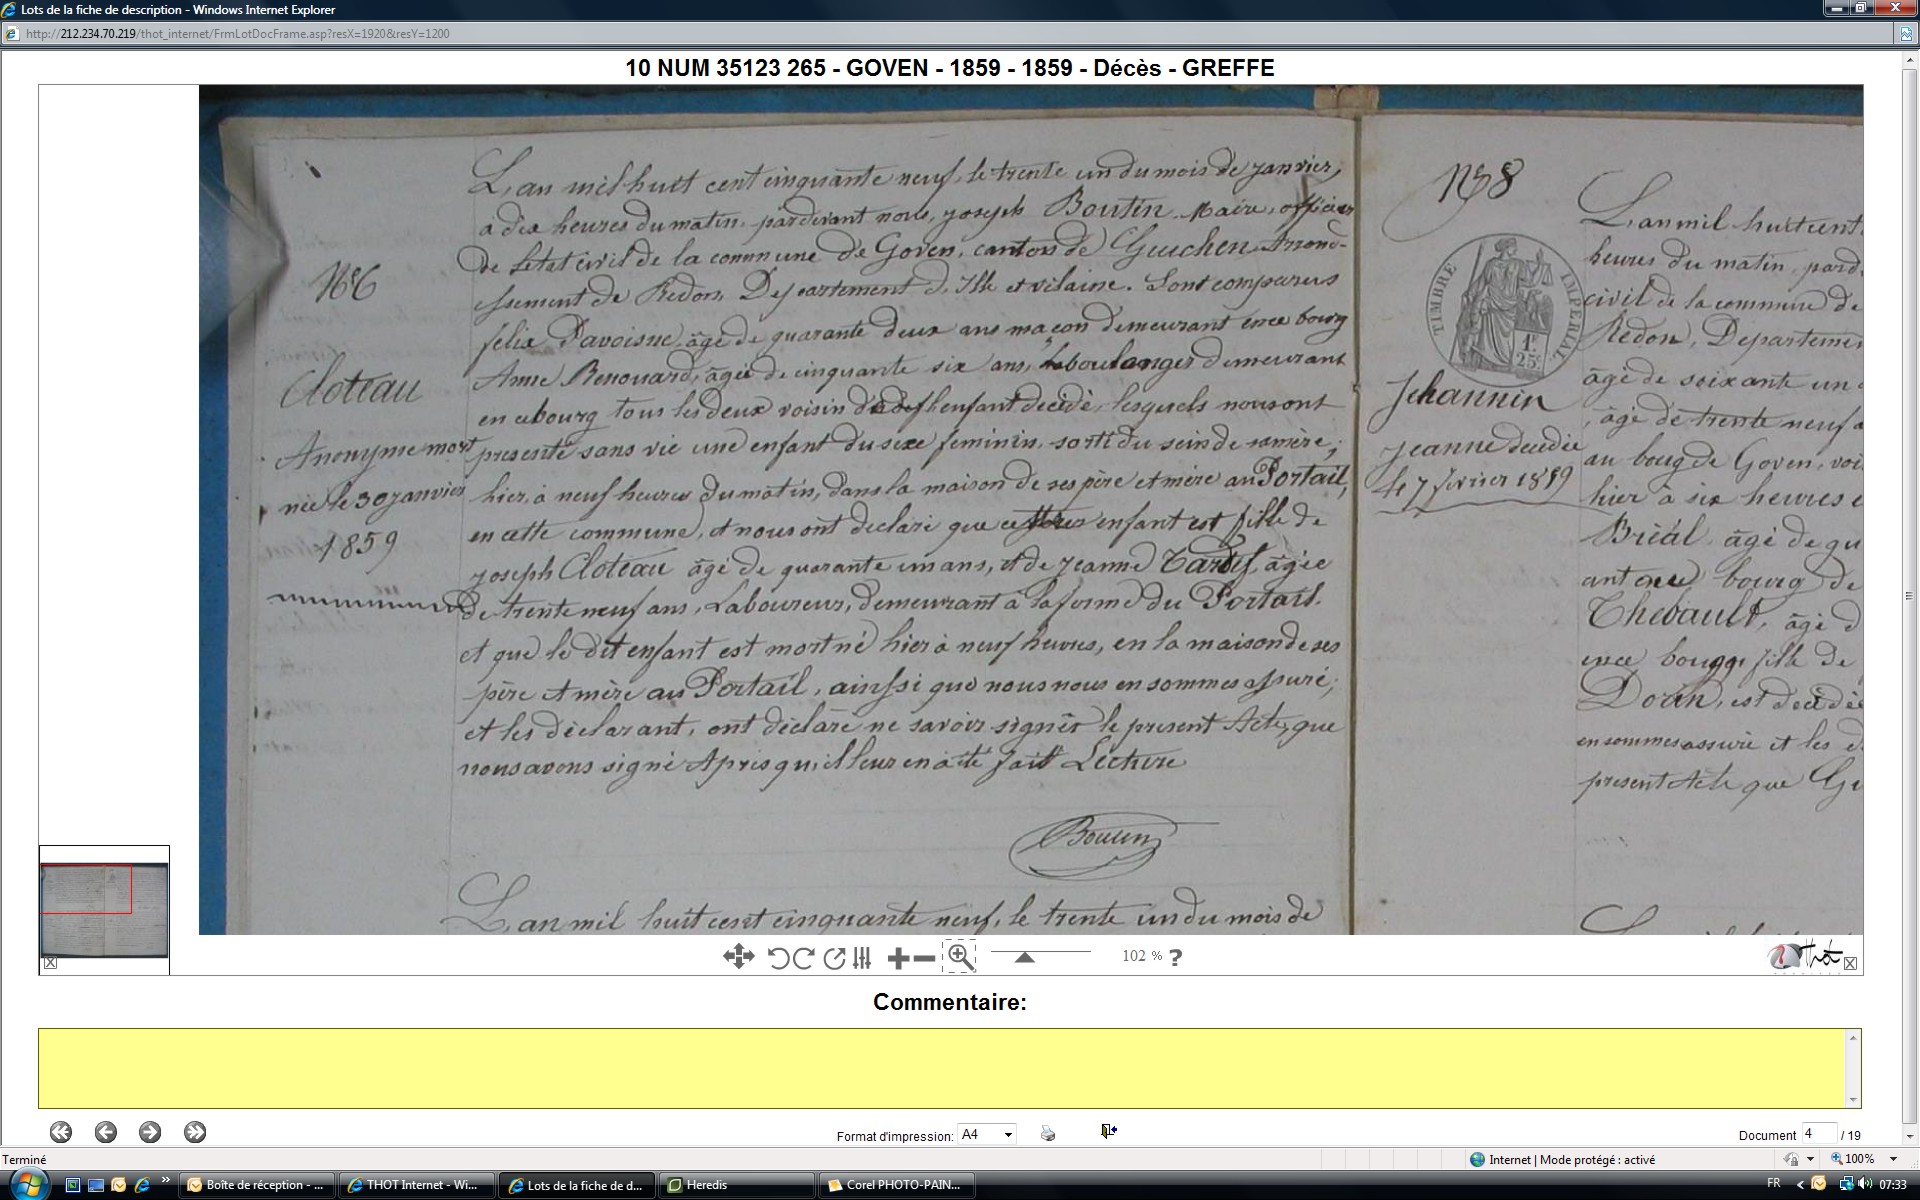 Lots de la fiche de description - Windows Internet Explorer
http://212.234.70.219/thot_internet/FrmLotDocFrame.asp?resX=1920&resY=1200
10 NUM 35123 265 - GOVEN - 1859 - 1859 - Décès - GREFFE
N°6
Cloteau
Anonyme mort
née le 30 janvier
1859
L'an mil huit cent cinquante neuf, le trente un du mois de janvier,
à dix heures du matin, pardevant nous, joseph Boutin Maire, officier
de letat civil de la commune de Goven, canton de Guichen Arrond-
issement de Redon, Departement d'Ille et vilaine. Sont comparus
felix Davoisne, âgé de quarante deux ans macon demeurant en ce bourg
Anne Renouard, âgée de cinquante six ans, boulanger demeurant
en ce bourg tous les deux voisin enfant decédé, lesquels nous ont
presenté sans vie une enfant du sexe féminin, sorti du sein de sa mère,
hier, à neuf heures du matin, dans la maison de ses père et mère au Portail,
en cette commune, et nous ont déclaré que cette enfant est fille de
joseph Cloteau âgé de quarante un ans, et de jeanne Tardif, âgée
de trente neuf ans, Laboureur, demeurant à la ferme du Portail.
et que le dit enfant est mort né hier à neuf heures, en la maison de ses
père et mère au Portail, ainssi que nous nous en sommes assuré,
et les déclarant, ont déclaré ne savoir signer le present Acte, que
nous avons signé Apres qu'il leur en à été fait Lecture
Boutin
L'an mil huit cent cinquante neuf, le trente un du mois de
N°8
TIMBRE IMPERIAL
1F
25C
Jehannin
jeanne decedée
le 7 fevrier 1859
L'an mil huit cent
heures du matin, pard
civil de la commune de
Redon, Departemen
âgé de soixante un
, âgé de trente neuf a
au boug de Goven, voi
hier à six heures
Briál âgé de qu
bourg de
Thebault, âgé d
en ce bourg, fille de
Doran, est decédée
en sommes assuré et les d
present Acte que
102 % ?
Thot
Commentaire:
Format d'impression: A4
Document 4 / 19
Terminé
Internet | Mode protégé : activé
100%
Boîte de réception - ...
THOT Internet - Wi...
Lots de la fiche de d...
Heredis
Corel PHOTO-PAIN...
FR
07:33